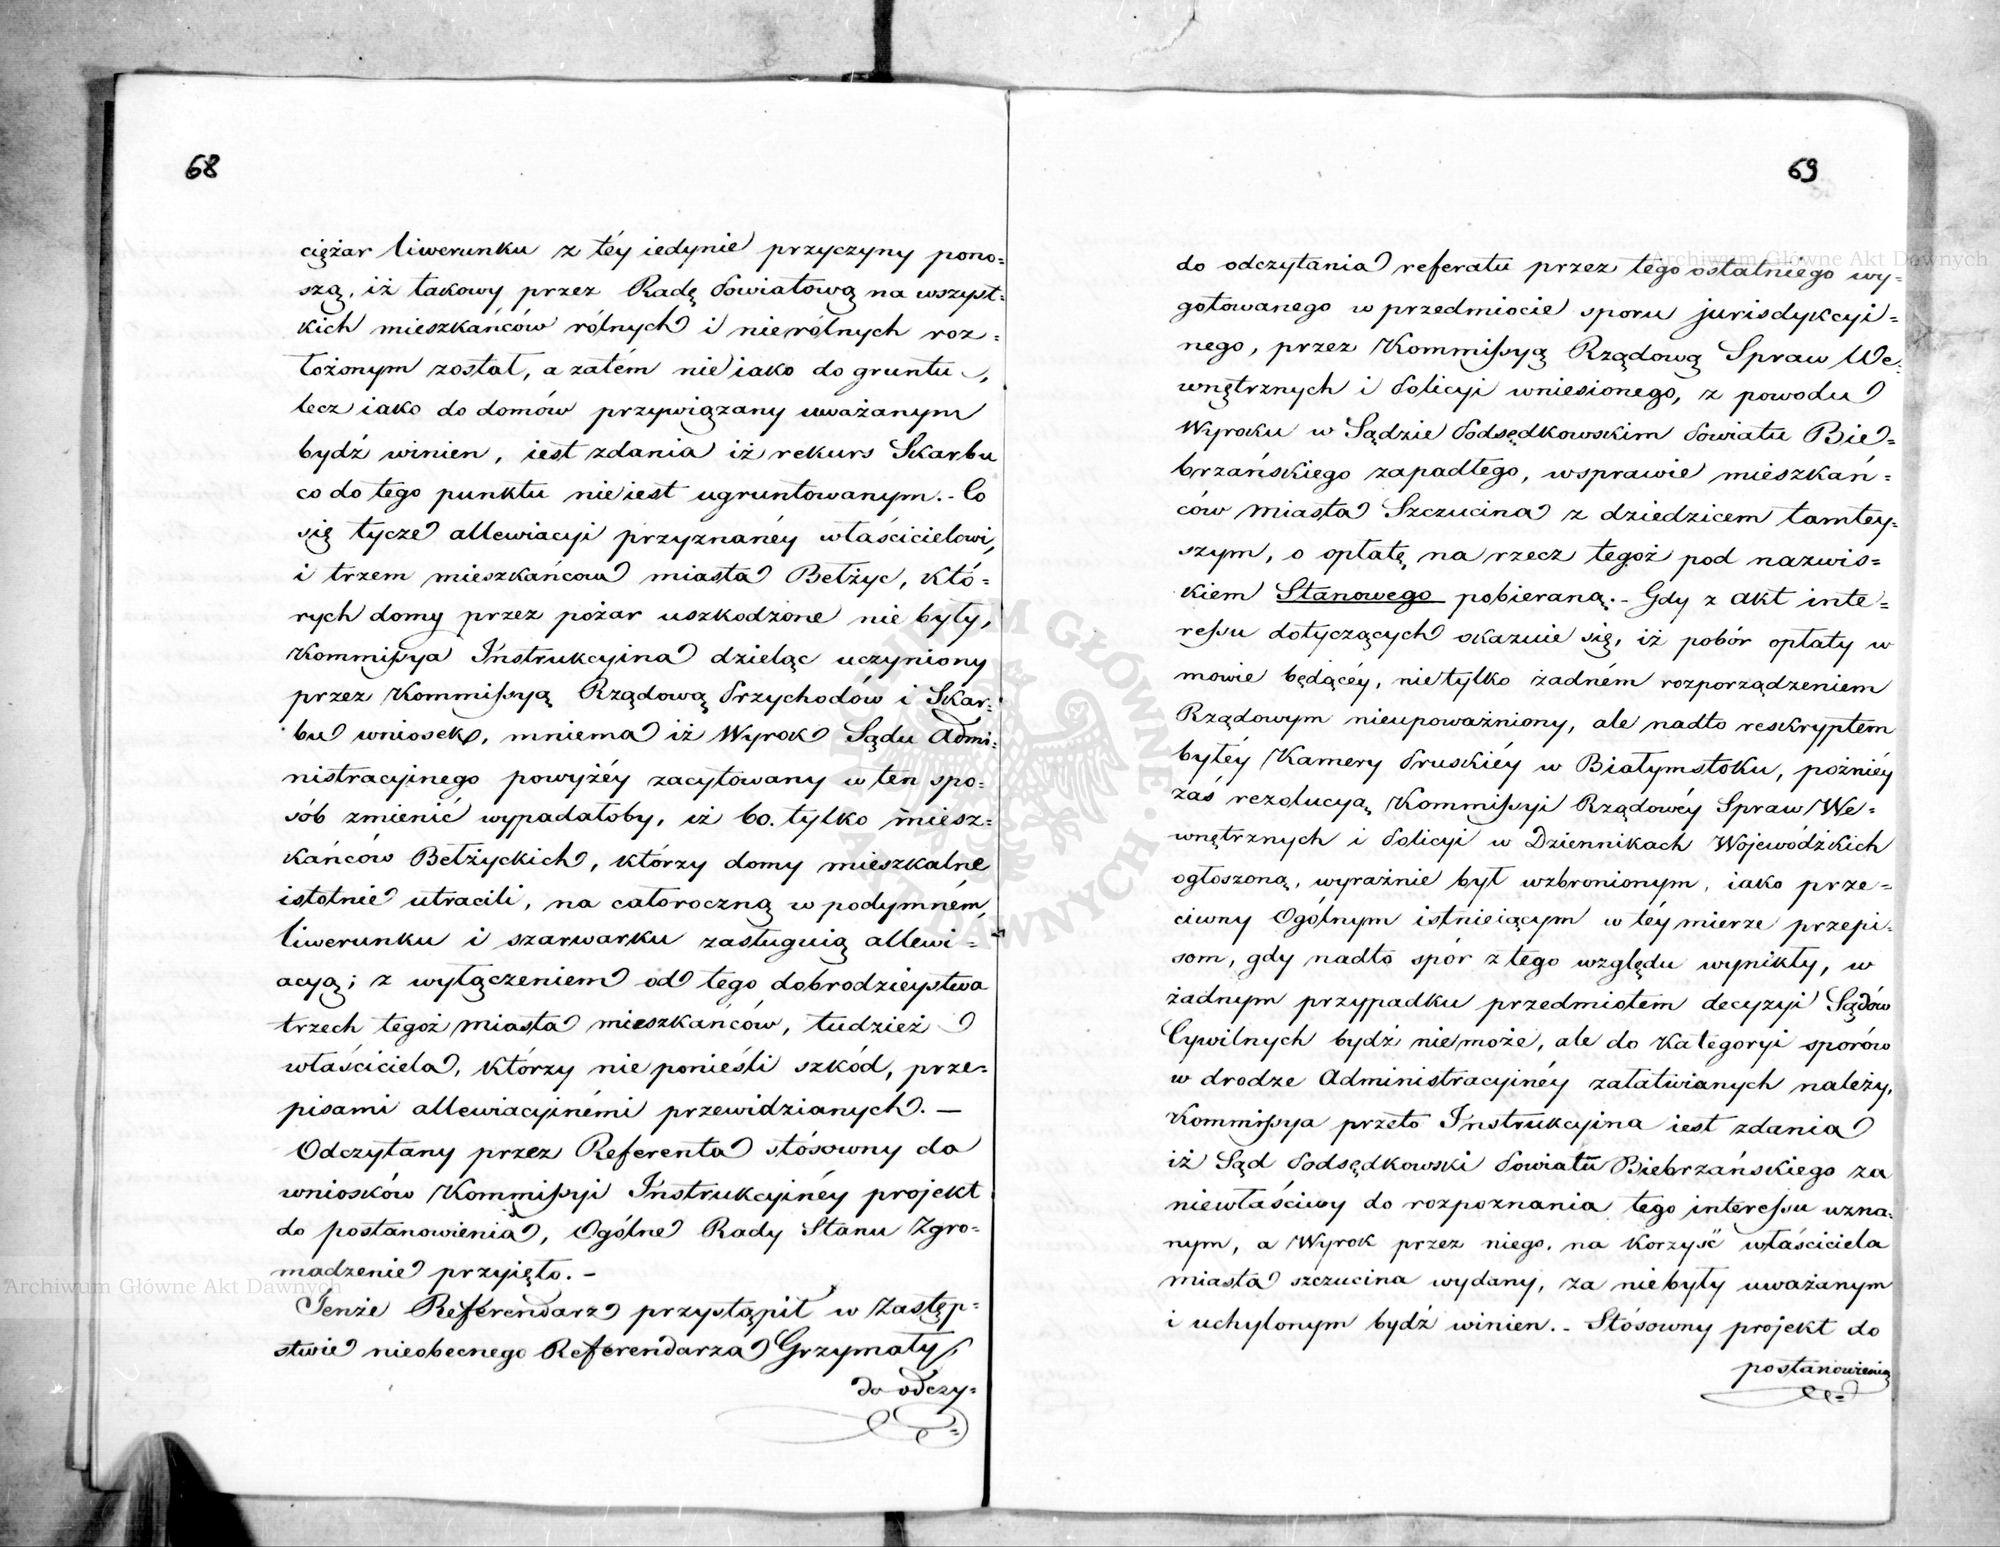 68
ciężar liwerunku z téy iedynie przyczyny pono=
szą, iż takowy przez Radę Powiatową na wszyst=
kich mieszkańców rólnych i nierólnych roz=
łożonym został, a zatém nie iako do gruntu,
lecz iako do domów przywiązany uważanym
bydź winien, iest zdania iż rekurs Skarbu
co do tego punktu nie iest ugruntowanym. - Co
się tycze allewiacyi przyznanéy właścicielowi,
i trzem mieszkańcom miasta Bełżyc, któ=
rych domy przez pożar uszkodzone nie były,
Kommissya Instrukcyina dzieląc uczyniony
przez Kommissyą Rządową Przychodów i Skar=
bu wniosek, mniema iż Wyrok Sądu Admi=
nistracyinego powyżéy zacytowany w ten spo=
sób zmienić wypadałoby, iż 60. tylko miesz=
kańców Bełżyckich, którzy domy mieszkalne
istotnie utracili, na całoroczną w podymném,
liwerunku i szarwarku zasługuią allewi=
acyą; z wyłączeniem od tego dobrodzieystwa
trzech tegoż miasta mieszkańców, tudzież
właściciela, którzy nie ponieśli szkód, prze=
pisami allewiacyinémi przewidzianych. —
Odczytany przez Referenta stósowny do
wniosków Kommissyi Instrukcyinéy projekt
do postanowienia, Ogólne Rady Stanu Zgro=
madzenie przyięło. -
Tenże Referendarz przystąpił w Zastęp=
stwie nieobecnego Referendarza Grzymały,
do odczy=
69
do odczytania referatu przez tego ostatniego wy=
gotowanego w przedmiocie sporu jurisdykcyi=
nego, przez Kommissyą Rządową Spraw We=
wnętrznych i Policyi wniesionego, z powodu
Wyroku w Sądzie Podsędkowskim Powiatu Bie=
brzańskiego zapadłego, w sprawie mieszkań=
ców miasta Szczucina z dziedzicem tamtey=
szym, o opłatę na rzecz tegoż pod nazwis=
kiem Stanowego pobieraną. - Gdy z akt inte=
ressu dotyczących okazuie się, iż pobór opłaty w
mowie będącéy, nie tylko żadném rozporządzeniem
Rządowym nieupoważniony, ale nadto reskryptem
byłéy Kamery Pruskiéy w Białymstoku, poźniéy
zaś rezolucyą Kommissyi Rządowéy Spraw We=
wnętrznych i Policyi w Dziennikach Wojewódźkich
ogłoszoną, wyraźnie był wzbronionym, iako prze=
ciwny Ogólnym istnieiącym w téy mierze przepi=
som, gdy nadto spór z tego względu wynikły, w
żadnym przypadku przedmiotem decyzyi Sądów
Cywilnych bydź nie może, ale do kategoryi sporów
w drodze Administracyinéy załatwianych należy,
Kommissya przeto Instrukcyina iest zdania
iż Sąd Podsędkowski Powiatu Biebrzańskiego za
niewłaściwy do rozpoznania tego interessu uzna=
nym, a Wyrok przez niego, na korzyść właściciela
miasta szczucina wydany, za niebyły uważanym
i uchylonym bydź winien. - Stósowny projekt do
postanowienia
Archiwum Główne Akt Dawnych
Archiwum Główne Akt Dawnych
ARCHIWUM GŁÓWNE AKT DAWNYCH